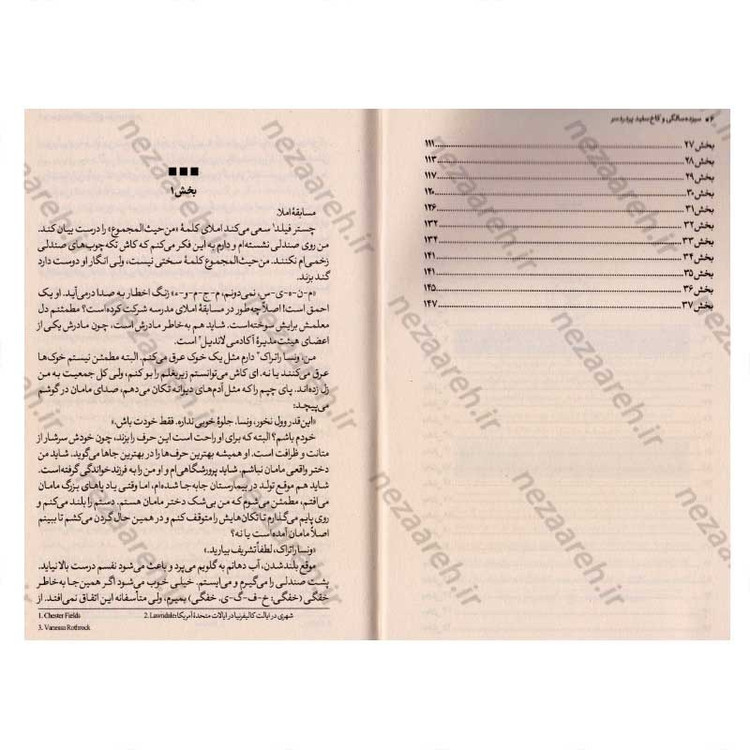 ۶ ■ سیزده‌سالگی و کاخ سفید پردردسر
بخش ۲۷ ... ۱۱۱
بخش ۲۸ ... ۱۱۳
بخش ۲۹ ... ۱۱۷
بخش ۳۰ ... ۱۲۰
بخش ۳۱ ... ۱۲۶
بخش ۳۲ ... ۱۳۲
بخش ۳۳ ... ۱۳۴
بخش ۳۴ ... ۱۴۱
بخش ۳۵ ... ۱۴۱
بخش ۳۶ ... ۱۴۵
بخش ۳۷ ... ۱۴۷
بخش ۱
مسابقهٔ املا.
چستر فیلد۱ سعی می‌کند املای کلمهٔ «من‌حیث‌المجموع» را درست بیان کند.
من روی صندلی نشسته‌ام و دارم به این فکر می‌کنم که کاش تکه‌چوب‌های صندلی
زخمی‌ام نکنند. من‌حیث‌المجموع کلمهٔ سختی نیست، ولی انگار او دوست دارد
گند بزند.
«م-ن-ه-ی-س، نمی‌دونم، م-ج-م-و-ه» زنگ اخطار به صدا درمی‌آید. او یک
احمق است! اصلاً چه‌طور در مسابقهٔ املای مدرسه شرکت کرده‌است؟ مطمئنم دل
معلمش برایش سوخته‌است. شاید هم به‌خاطر مادرش است، چون مادرش یکی از
اعضای هیئت مدیرهٔ آکادمی لاندیل۲ است.
من، ونسا راتراک۳ دارم مثل یک خوک عرق می‌کنم. البته مطمئن نیستم خوک‌ها
عرق می‌کنند یا نه. ای کاش می‌توانستم زیربغلم را بو کنم، ولی کل جمعیت به من
زل زده‌اند. پای چپم را که مثل آدم‌های دیوانه تکان می‌دهم، صدای مامان در گوشم
می‌پیچد:
«این‌قدر وول نخور، ونسا. جلوهٔ خوبی نداره. فقط خودت باش.»
خودم باشم؟ البته که برای او راحت است این حرف را بزند، چون خودش سرشار از
متانت و ظرافت است. او همیشه بهترین حرف‌ها را در بهترین جاها می‌گوید. شاید من
دختر واقعی مامان نباشم. شاید پرورشگاهی‌ام و او من را به فرزندخواندگی گرفته‌است.
شاید هم موقع تولد در بیمارستان جابه‌جا شده‌ام، اما وقتی یاد پاهای بزرگ مامان
می‌افتم، مطمئن می‌شوم که من بی‌شک دختر مامان هستم. دستم را بلند می‌کنم و
روی پایم می‌گذارم تا تکان‌هایش را متوقف کنم و در همین حال گردن می‌کشم تا ببینم
اصلاً مامان آمده است یا نه؟
«ونسا راتراک، لطفاً تشریف بیارید.»
موقع بلندشدن، آب دهانم به گلویم می‌پرد و باعث می‌شود نفسم درست بالا نیاید.
پشت صندلی را می‌گیرم و می‌ایستم. خیلی خوب می‌شود اگر همین‌جا به‌خاطر
خفگی (خفگی: خ-ف-گ-ی. خفگی) بمیرم، ولی متأسفانه این اتفاق نمی‌افتد. از
1. Chester Fields
2. Lawndale: شهری در ایالت کالیفرنیا در ایالات متحدهٔ آمریکا
3. Vanessa Rothrock
nezaareh.ir
nezaareh.ir
nezaareh.ir
nezaareh.ir
nezaareh.ir
nezaareh.ir
nezaareh.ir
nezaareh.ir